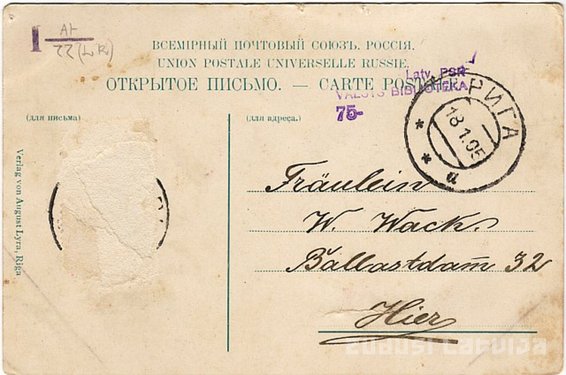 I AI
22 (LR)
ВСЕМІРНЫЙ ПОЧТОВЫЙ СОЮЗЪ. РОССІЯ.
UNION POSTALE UNIVERSELLE RUSSIE.
ОТКРЫТОЕ ПИСЬМО. — CARTE POSTALE
Latv. PSR
VALSTS BIBLIOTEKA
75-
РИГА
18.1.05
(для письма)
(для адреса.)
Verlag von August Lyra, Riga.
Fräulein
W. Wack.
Ballastdam̄ 32
Hier
zudusi latvija